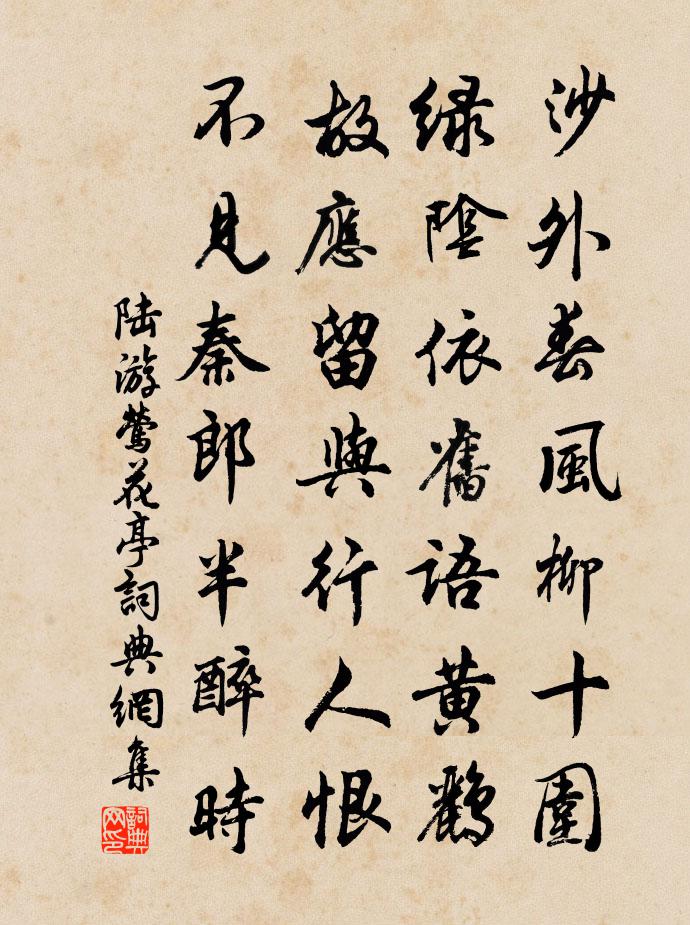 沙外春風柳十圍
綠陰依舊語黃鸝
故應留與行人恨
不見秦郎半醉時
陸游鶯花亭詞典網集
詞典网印